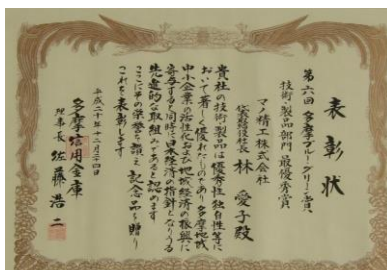 表彰状
第六回 多摩ブルー・グリーン賞
技術・製品部門 最優秀賞
マノ精工株式会社
代表取締役社長 林 愛子殿
貴社の技術製品は優秀性独自性等に
おいて著しく優れたものであり多摩地域
中小企業の活性化および地域経済の振興に
寄与すると同時に日本経済の指針となりうる
先進的な取組みであると認めます
ここにその栄誉を讃え記念品を贈り
これを表彰します
平成二十年十二月二十四日
多摩信用金庫
理事長 佐藤浩二